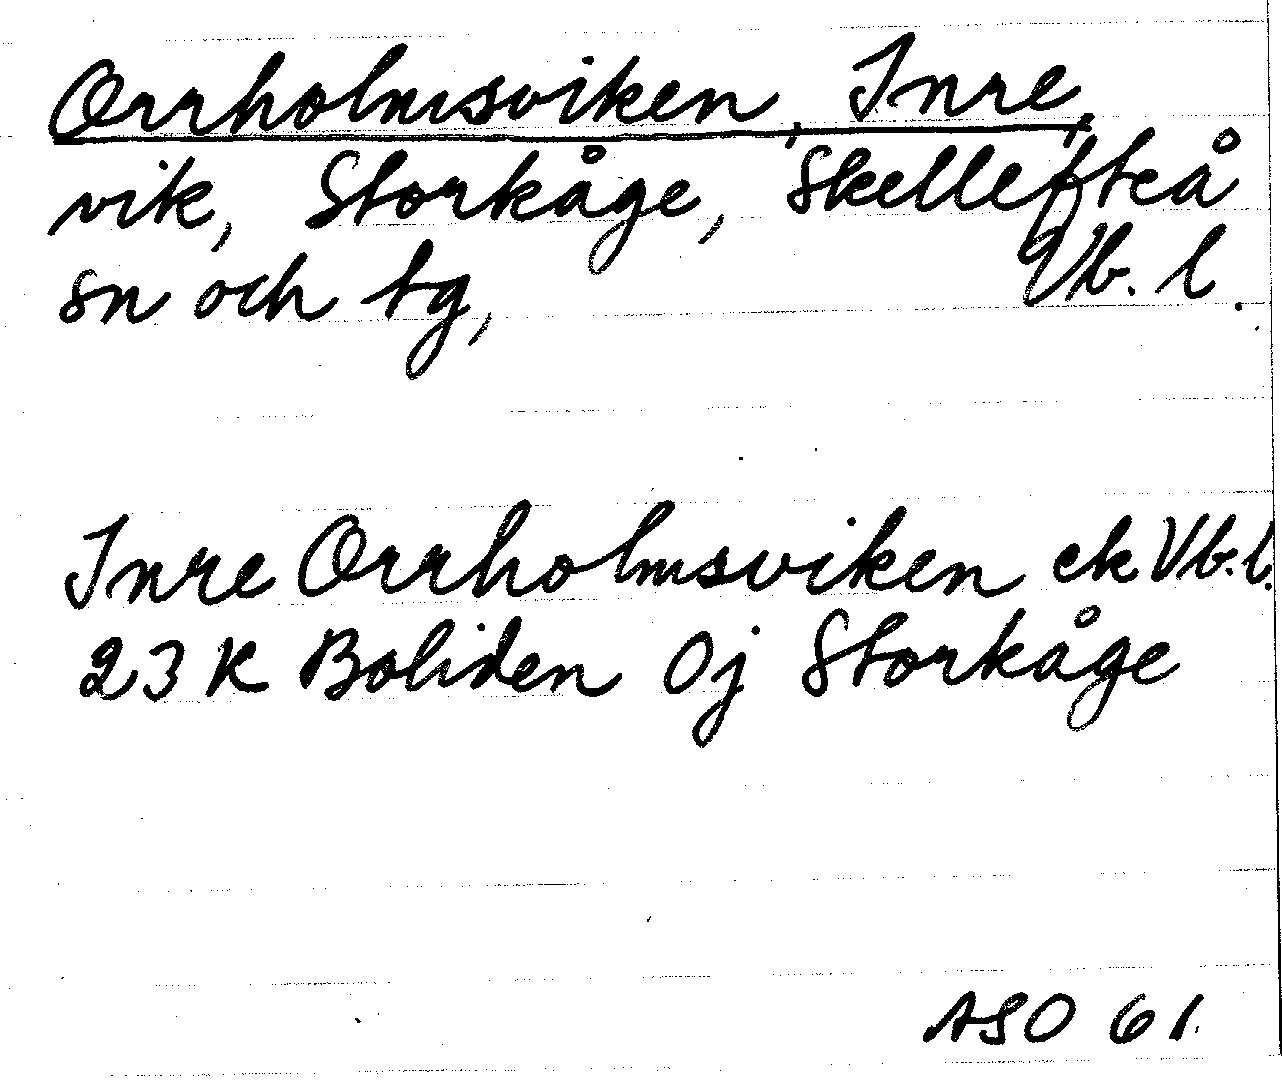 Orrholmsviken, Inre,
vik, Storkåge, Skellefteå
sn och tg, Vb. l.
Inre Orrholmsviken ek Vb. l.
23 K Boliden Oj Storkåge
ASO 61.